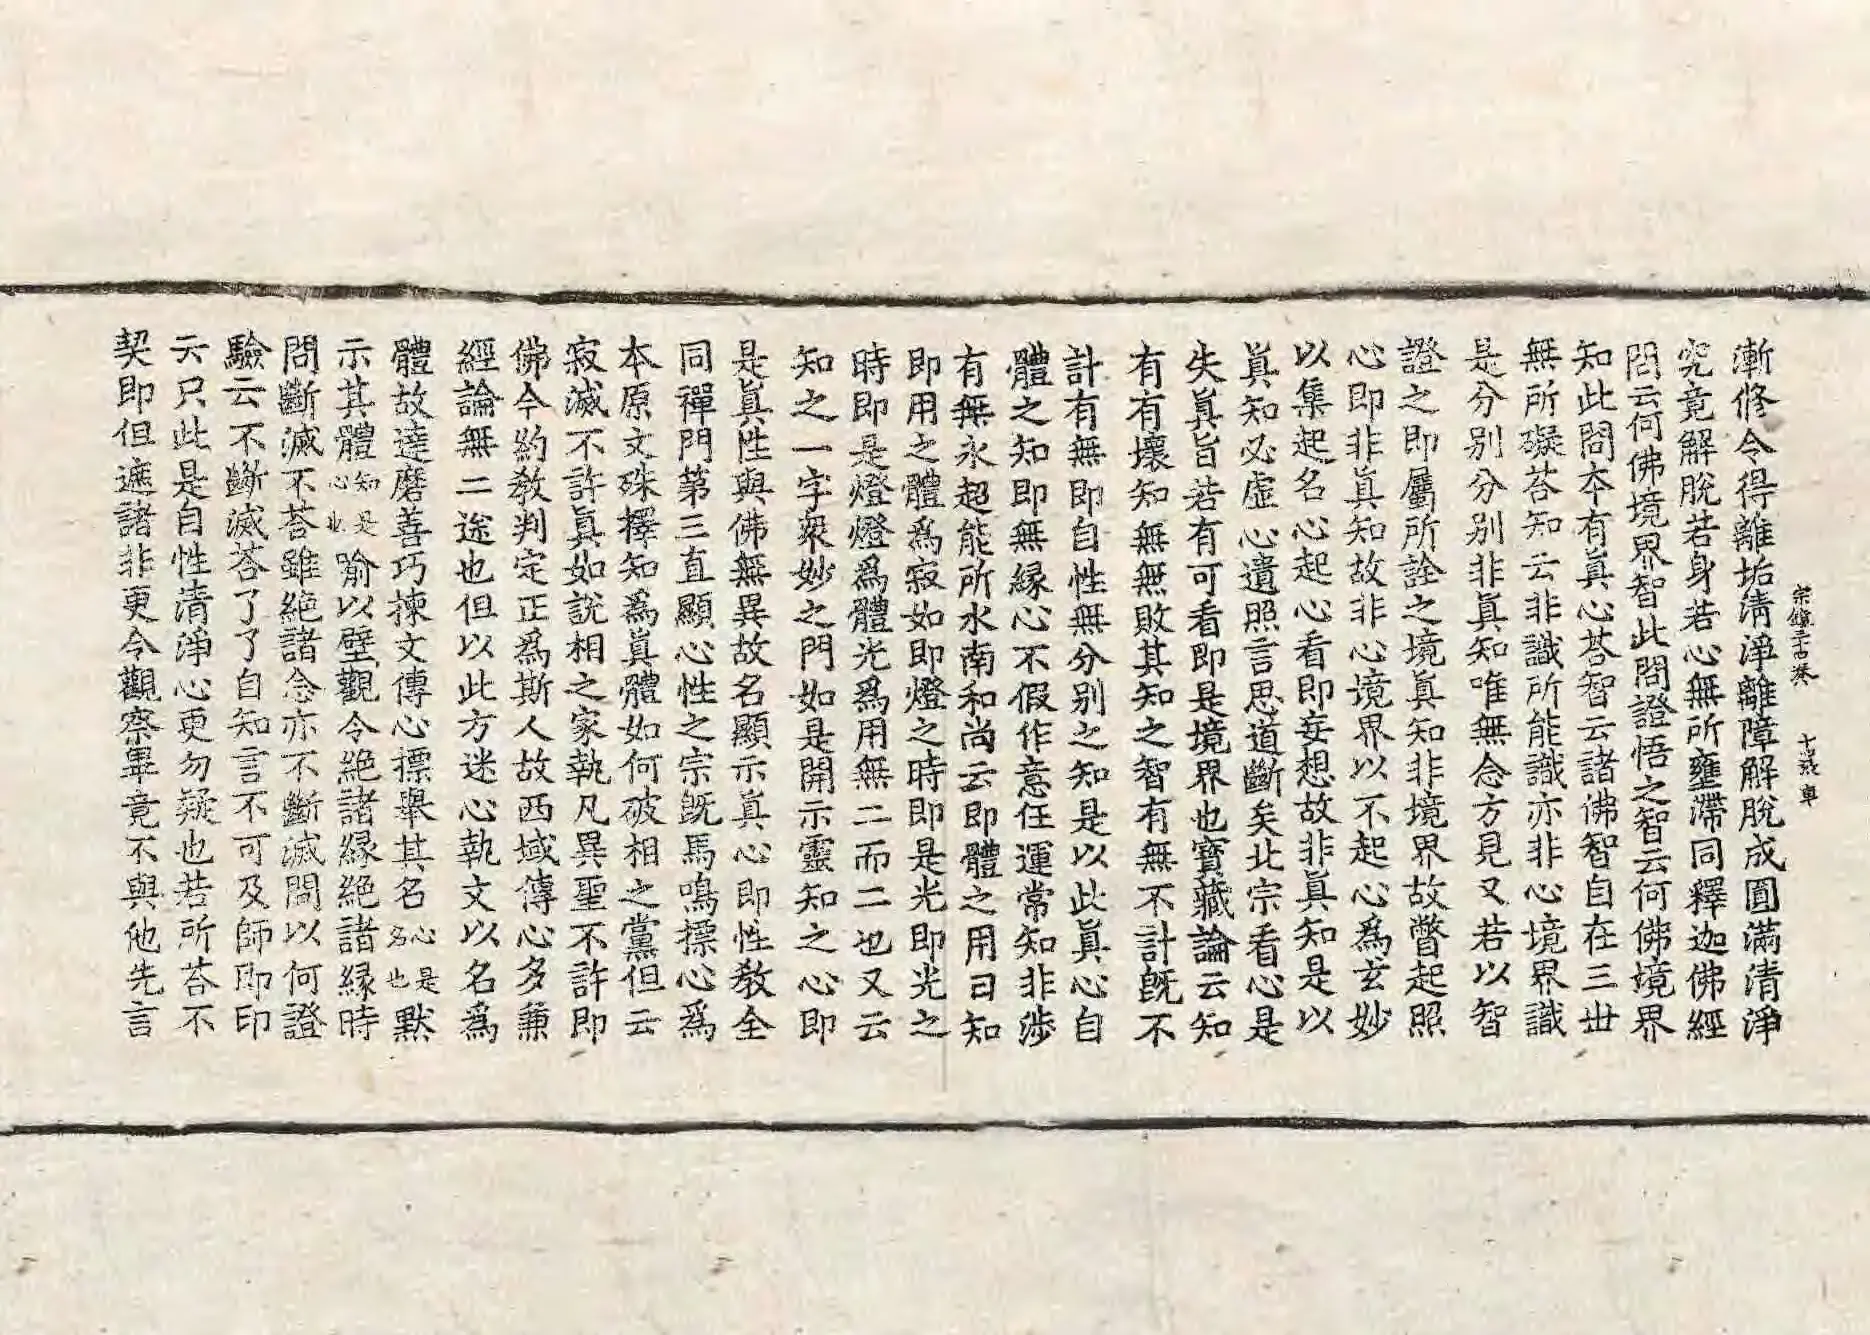 宗鏡三十四卷
漸修令得離垢清淨離障解脫成圓滿清淨
究竟解脫若身若心無所壅滯同釋迦佛經
問云何佛境界智此問證悟之智云何佛境界
知此問本有眞心荅智云諸佛智自在三世
無所礙荅知云非識所能識亦非心境界識
是分別分別非眞知唯無念方見又若以智
證之即屬所詮之境眞知非境界故瞥起照
心即非眞知故非心境界以不起心爲玄妙
以集起名心起心看即妄想故非眞知是以
眞知必虛心遺照言思道斷矣北宗看心是
失眞旨若有可看即是境界也寶藏論云知
有有壞知無無敗其知之智有無不計旣不
計有無即自性無分別之知是以此眞心自
體之知即無緣心不假作意任運常知非涉
有無永超能所水南和尚云即體之用曰知
即用之體爲寂如即燈之時即是光即光之
時即是燈燈爲體光爲用無二而二也又云
知之一字衆妙之門如是開示靈知之心即
是眞性與佛無異故名顯示眞心即性敎全
同禪門第三直顯心性之宗旣馬鳴摽心爲
本原文殊擇知爲眞體如何破相之黨但云
寂滅不許眞如說相之家執凡異聖不許即
佛今約敎判定正爲斯人故西域傳心多兼
經論無二途也但以此方迷心執文以名爲
體故達磨善巧揀文傳心摽舉其名心是名也默
示其體知是心也喻以壁觀令絕諸緣絕諸緣時
問斷滅不荅雖絕諸念亦不斷滅問以何證
驗云不斷滅荅了了自知言不可及師即印
云只此是自性清淨心更勿疑也若所荅不
契即但遮諸非更令觀察畢竟不與他先言